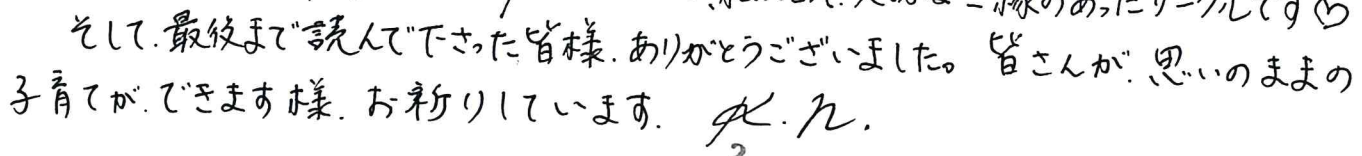 縁のあったサークルです♡
そして、最後まで読んで下さった皆様、ありがとうございました。皆さんが、思いのままの
子育てが、できます様、お祈りしています。 K.N.